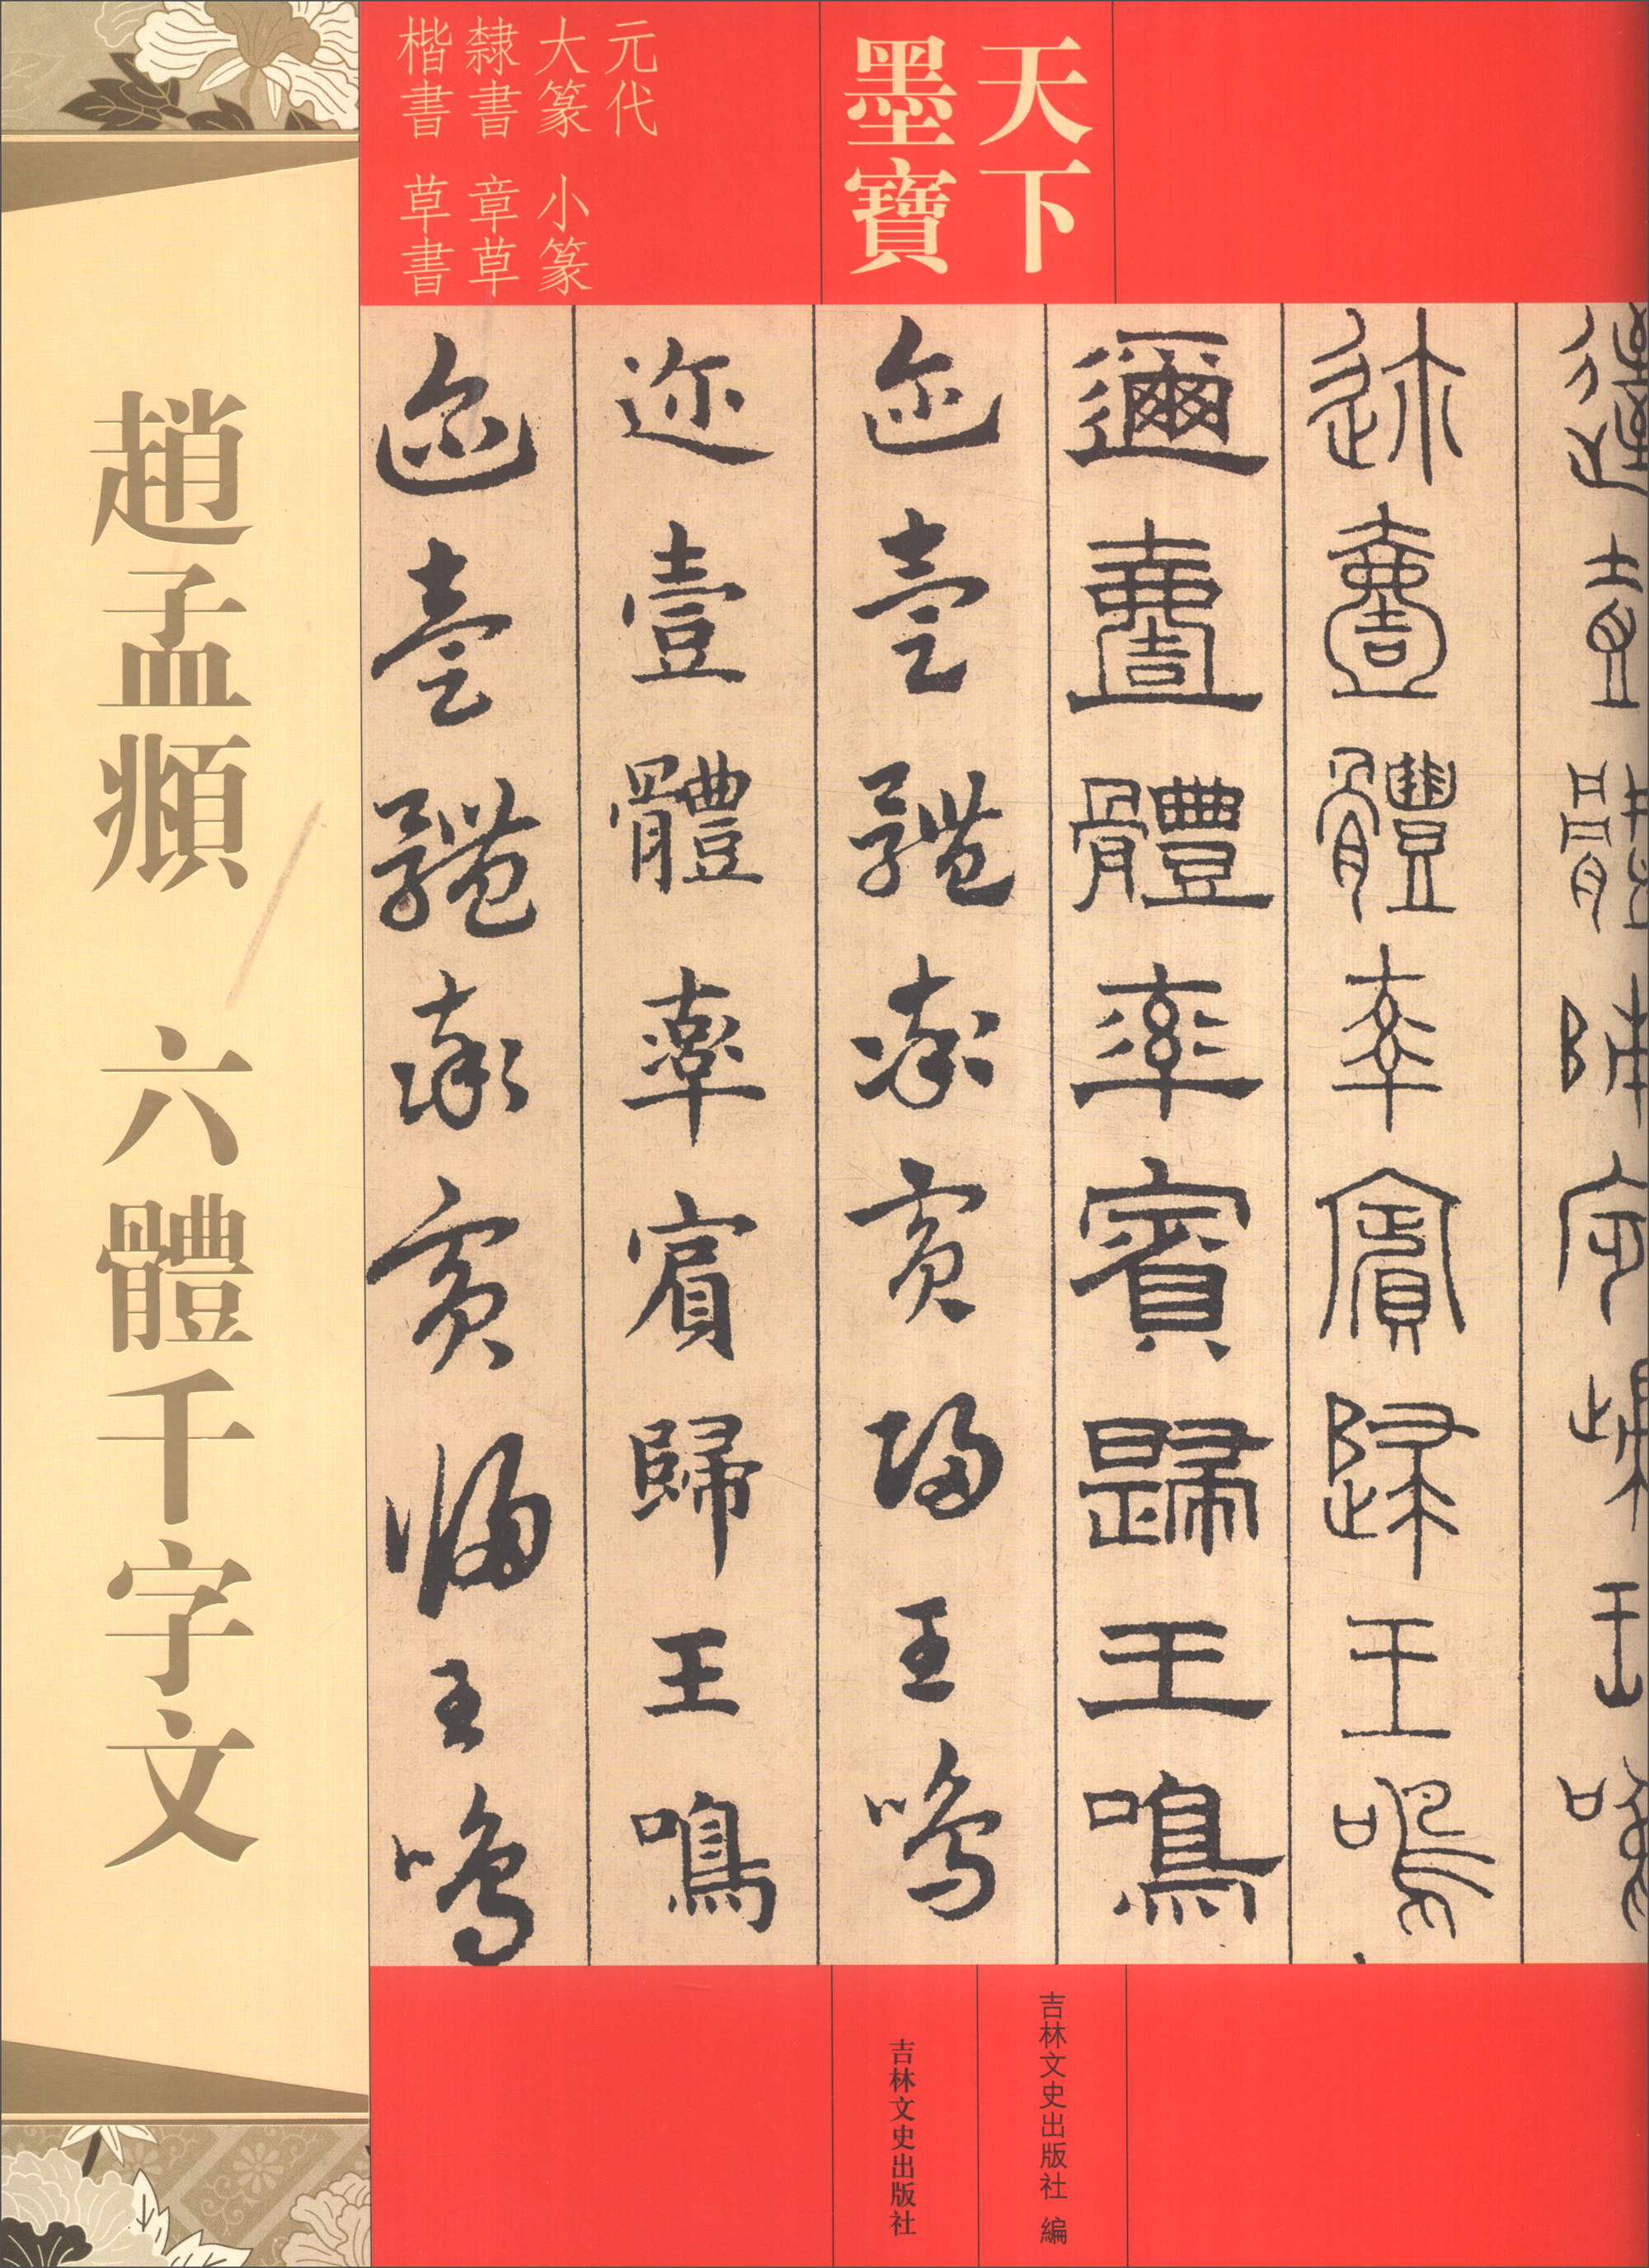 天下
墨寶
元代
大篆 小篆
隸書 章草
楷書 草書
趙孟頫 六體千字文
邇壹體率賓歸王鳴
邇壹體率賓歸王鳴
邇壹體率賓歸王鳴
邇壹體率賓歸王鳴
迩壹體率賓歸王鳴
邇壹體率賓歸王鳴
吉林文史出版社 編
吉林文史出版社